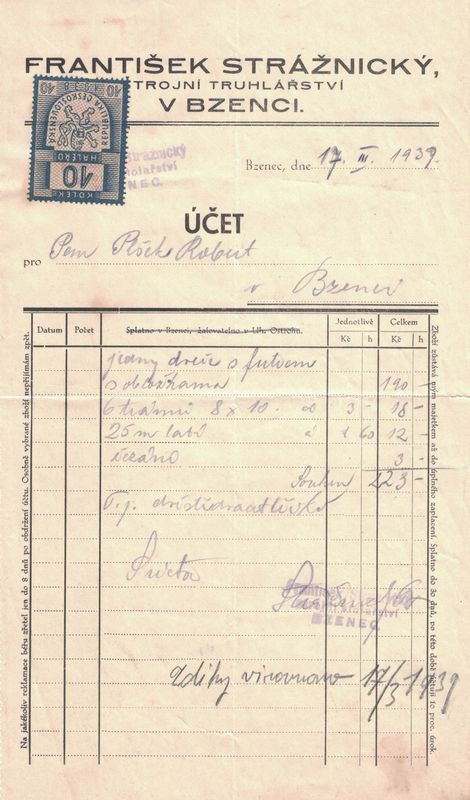 FRANTIŠEK STRÁŽNICKÝ,
STROJNÍ TRUHLÁŘSTVÍ
V BZENCI.
REPUBLIKA ČESKOSLOVENSKÁ
10
HALÉŘŮ
KOLEK
Strážnický
BZENEC.
Bzenec, dne 17. III. 1939.
ÚČET
pro Pan Robert
v Bzenci
Datum Počet Splatno v Bzenci, žalovatelno v Uh. Ostrohu. Jednotlivě Kč h Celkem Kč h
jedny dveře s futrem
190 —
6 trámů 8 x 10. 3 — 18 —
25 m latí á 60 12 —
3 —
Souhrn 223 —
T. j.
František
BZENEC
Zdiky 17/3 1939
Na jakékoliv reklamace běru zřetel jen do 8 dnů po obdržení účtu. Osobně vybrané zboží nepřijímám zpět.
Zboží zůstává mým majetkem až do úplného zaplacení. Splatno do 30 dnů, po této době účtuji 1c proc. úrok.